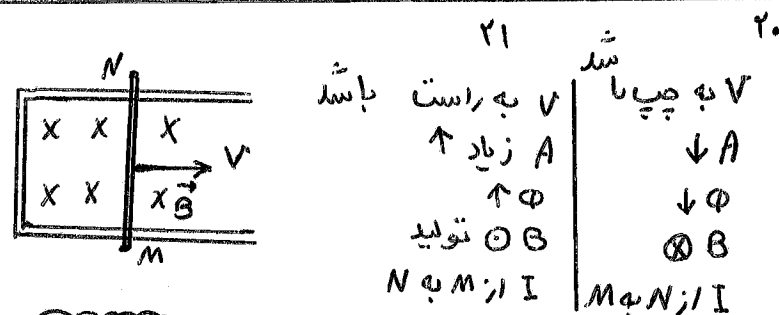 ۲۰
۲۱
V به چپ باشد
A ↓
Φ ↓
B ⊗
I از N به M
V به راست باشد
A زیاد ↑
Φ ↑
B ⊙ تولید
I از M به N
N
X X X
V
X X X B
M